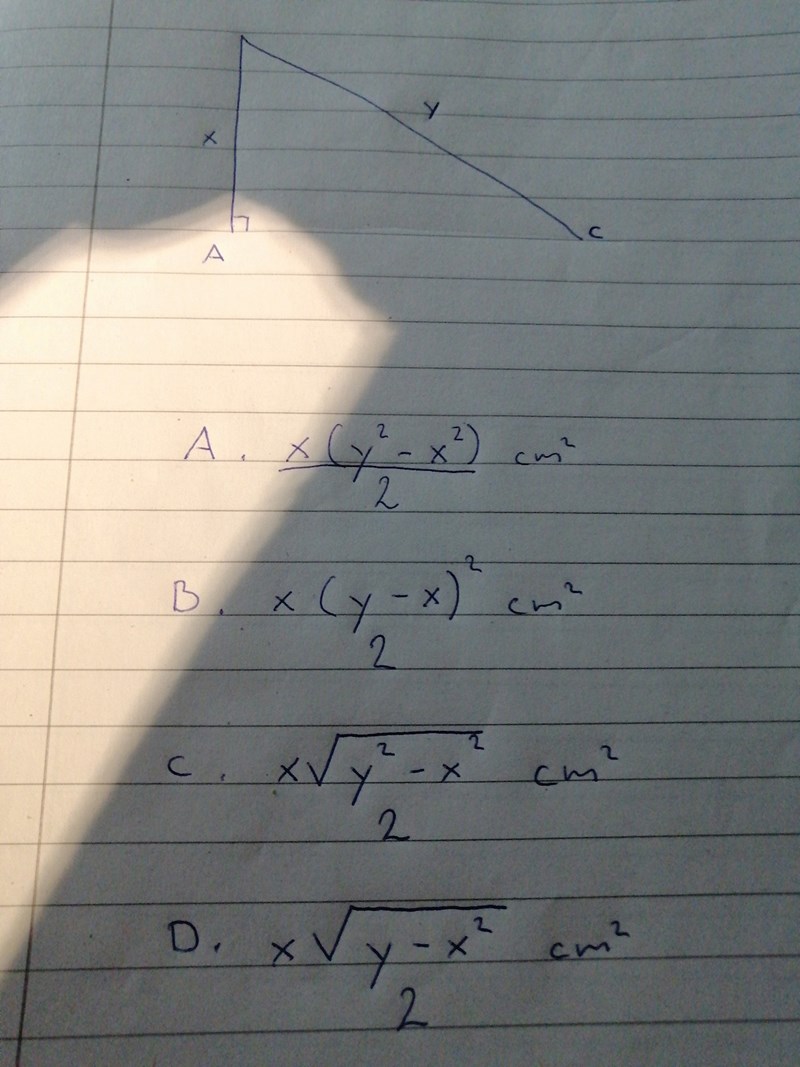 x
y
A
C
A. x(y² - x²) cm²
2
B. x(y - x)² cm²
2
C. x√y² - x² cm²
2
D. x√y - x² cm²
2